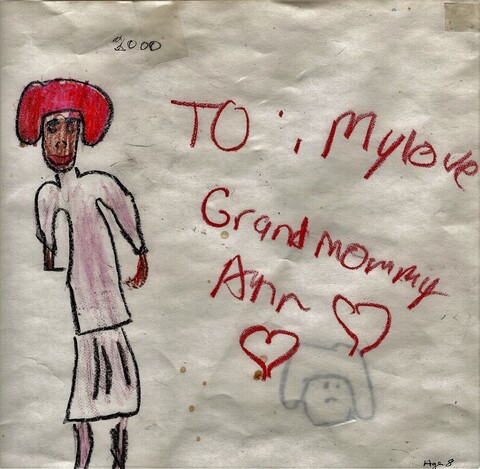 2000
TO: My love
Grandmommy
Ann
Age 8